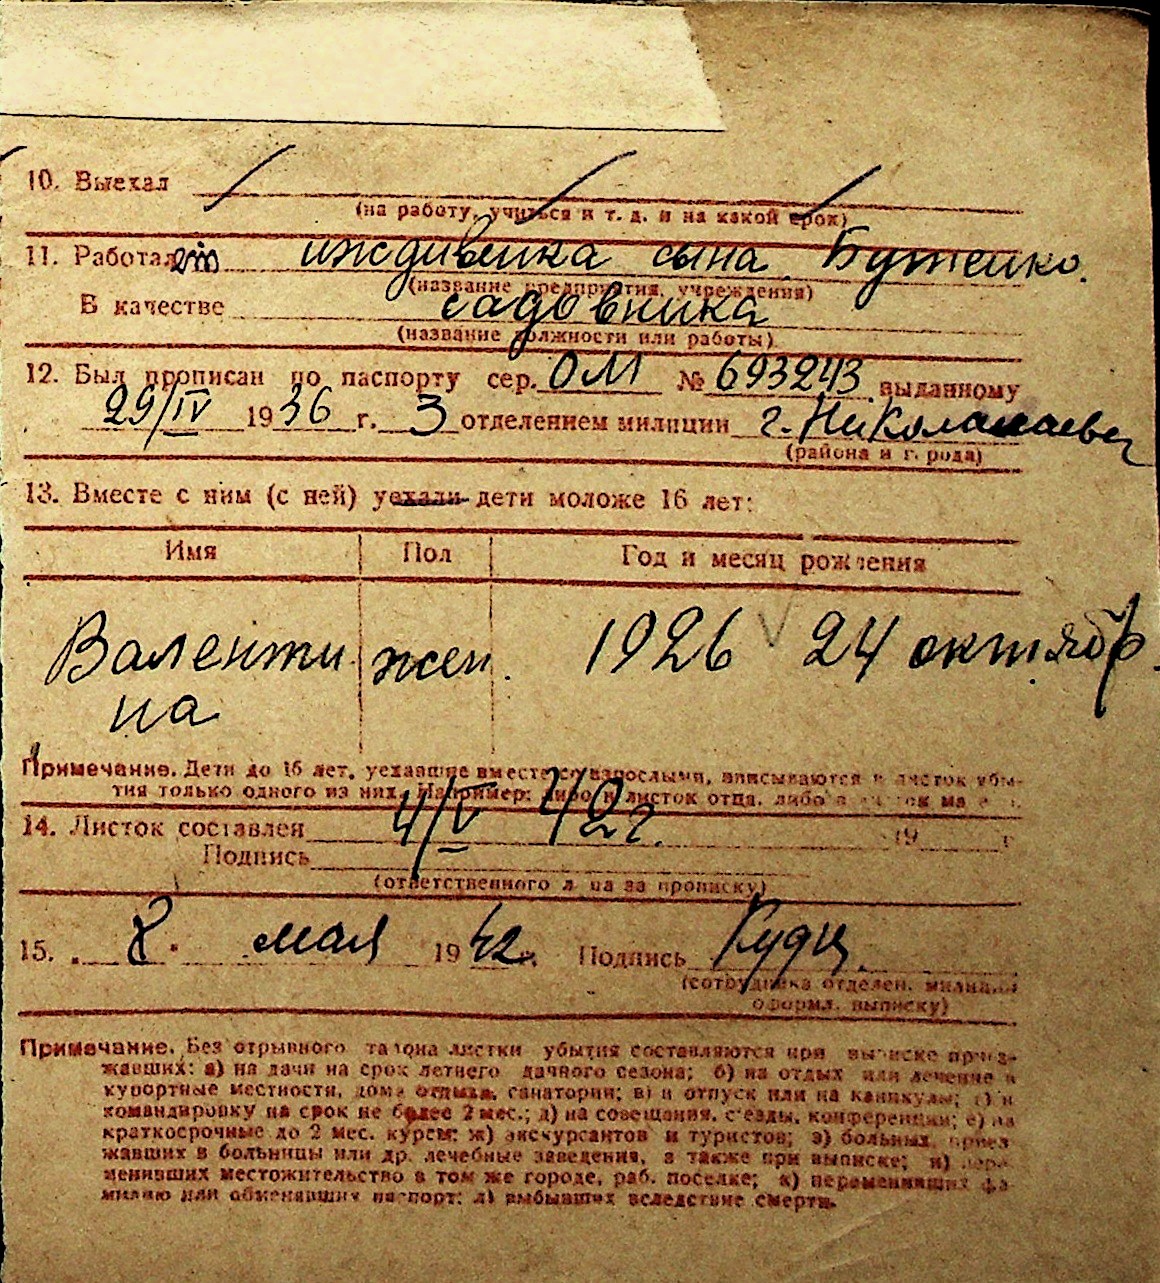 10. Выехал
(на работу, учиться и т. д. и на какой срок)
11. Работал иждивенка сына Бутейко.
(название предприятия, учреждения)
В качестве садовника
(название должности или работы)
12. Был прописан по паспорту сер. ОМ № 693243 выданному
29/IV 1936 г. 3 отделением милиции г. Николаева
(района и города)
13. Вместе с ним (с ней) уехали дети моложе 16 лет:
Имя Пол Год и месяц рождения
Валенти жен. 1926 24 октябр
на
Примечание. Дети до 16 лет, уехавшие вместе со взрослыми, вписываются в листок убы-
тия только одного из них. Например: либо в листок отца, либо в листок ма
14. Листок составлен 4/V 42 г. 19 г
Подпись
(ответственного лица за прописку)
15. 8. мая 1942. Подпись
(сотрудника отделен. милиции
оформл. выписку)
Примечание. Без отрывного талона листки убытия составляются при выписке приез-
жавших: а) на дачи на срок летнего дачного сезона; б) на отдых или лечение в
курортные местности, дома отдыха, санатории; в) в отпуск или на каникулы; г) в
командировку на срок не более 2 мес.; д) на совещания, с'езды, конференции; е) на
краткосрочные до 2 мес. курсы; ж) экскурсантов и туристов; з) больных, приез
жавших в больницы или др. лечебные заведения, а также при выписке; и) пере
менивших местожительство в том же городе, раб. поселке; к) переменивших фа
милию или обменявших паспорт; л) выбывших вследствие смерти.